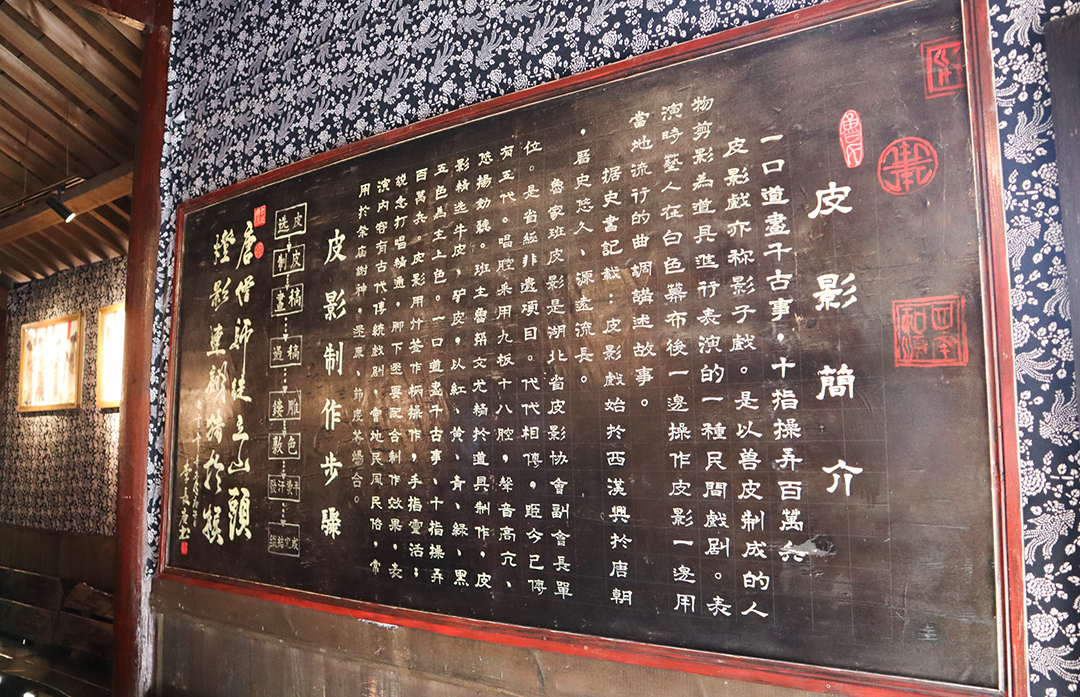 皮影簡介
一口道盡千古事，十指操弄百萬兵
皮影戲亦称影子戲。是以兽皮制成的人
物剪影為道具進行表演的一種民間戲剧。表
演時藝人在白色幕布後一邊操作皮影一邊用
當地流行的曲調講述故事。
据史書記載：皮影戲始於西漢興於唐朝
，曆史悠久、源遠流長。
魯家班皮影是湖北省皮影協會副會長單
位。是省級非遺項目。代代相傳，距今已傳
有五代。唱腔采用九板十八腔，聲音高亢、
悠揚動聽。班主魯 文尤精於道具制作，皮
影精选牛皮，驴皮，以紅、黄、青、緑、黑
五色為主上色。一口道盡千古事、十指操弄
百萬兵。皮影用竹签作柄操作，手指靈活；
説念打唱精通，脚下還要配合制作效果，表
演内容有古代傳統戲剧，當地民風民俗，常
用於祭庙謝神，還愿、節慶等場合。
皮影制作步驟
选皮
制皮
畫稿
過稿
鏤雕
敷色
發汗熨平
綴結完成
唐僧師徒三山頭
燈影連